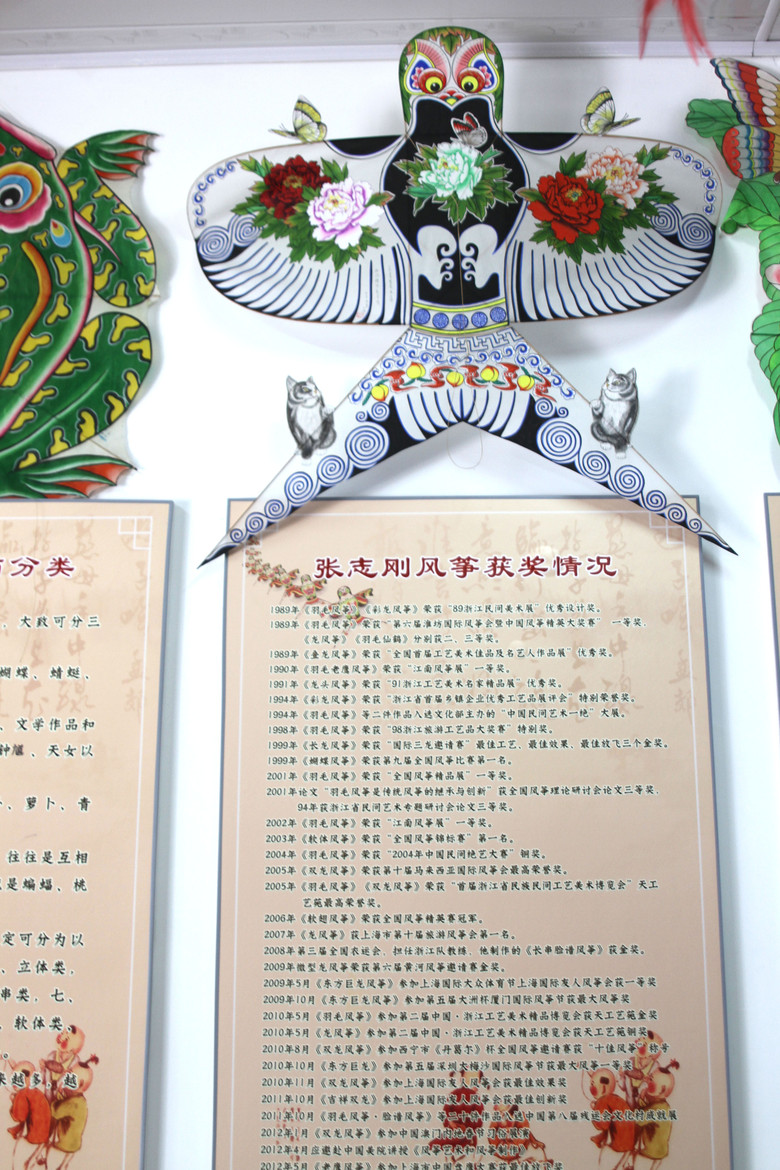 分类
大致可分三
蝴蝶、蜻蜓、
、文学作品和
钟馗、天女以
、萝卜、青
往往是互相
是蝙蝠、桃
定可分为以
、立体类，
串类。七、
、软体类、
。
来越多，越
张志刚风筝获奖情况
1989年《羽毛风筝》《彩龙风筝》荣获“89浙江民间美术展”优秀设计奖。
1989年《羽毛风筝》荣获“第六届潍坊国际风筝会暨中国风筝精英大奖赛” 一等奖、
《龙风筝》《羽毛仙鹤》分别获二、三等奖。
1989年《金龙风筝》荣获“全国首届工艺美术佳品及名艺人作品展”优秀奖。
1990年《羽毛老鹰风筝》荣获“江南风筝展”一等奖。
1991年《龙头风筝》荣获“91浙江工艺美术名家精品展”优秀奖。
1994年《彩龙风筝》荣获“浙江省首届乡镇企业优秀工艺品展评会”特别荣誉奖。
1994年《羽毛风筝》等二件作品入选文化部主办的“中国民间艺术一绝”大展。
1998年《羽毛风筝》荣获“98浙江旅游工艺品大奖赛”特别奖。
1999年《长龙风筝》荣获“国际三龙邀请赛”最佳工艺、最佳效果、最佳放飞三个金奖。
1999年《蝴蝶风筝》荣获第九届全国风筝比赛第一名。
2001年《羽毛风筝》荣获“全国风筝精品展”一等奖。
2001年论文“羽毛风筝是传统风筝的继承与创新”获全国风筝理论研讨会论文三等奖、
94年获浙江省民间艺术专题研讨会论文三等奖。
2002年《羽毛风筝》荣获“江南风筝展”一等奖。
2003年《软体风筝》荣获“全国风筝锦标赛”第一名。
2004年《羽毛风筝》荣获“2004年中国民间绝艺大赛”铜奖。
2005年《双龙风筝》荣获第十届马来西亚国际风筝会最高荣誉奖。
2005年《羽毛风筝》《双龙风筝》荣获“首届浙江省民族民间工艺美术博览会”天工
艺苑最高荣誉奖。
2006年《软翅风筝》荣获全国风筝精英赛冠军。
2007年《龙风筝》获上海市第十届旅游风筝会第一名。
2008年第三届全国农运会，担任浙江队教练，他制作的《长串脸谱风筝》获金奖。
2009年微型龙风筝荣获第六届黄河风筝邀请赛金奖。
2009年5月《东方巨龙风筝》参加上海国际大众体育节上海国际友人风筝会获一等奖
2009年10月《东方巨龙风筝》参加第五届大洲杯厦门国际风筝节获最大风筝奖
2010年5月《羽毛风筝》参加第二届中国·浙江工艺美术精品博览会获天工艺苑金奖
2010年5月《龙风筝》参加第二届中国·浙江工艺美术精品博览会获天工艺苑铜奖
2010年8月《双龙风筝》参加西宁市《丹葛尔》杯全国风筝邀请赛获“十佳风筝”称号
2010年10月《东方巨龙》参加第五届深圳大梅沙国际风筝节获最大风筝一等奖
2010年11月《双龙风筝》参加上海国际友人风筝会获最佳效果奖
2011年10月《吉祥双龙》参加上海国际友人风筝会获最佳创新奖
2011年10月《羽毛风筝·脸谱风筝》等三十件作品入选中国第八届残运会文化村成就展
2012年1月《双龙风筝》参加中国澳门内地春节习俗展演
2012年4月应邀赴中国美院讲授《风筝艺术和风筝制作》
2012年5月《老鹰风筝》参加上海市中国会鹰大赛获最佳放正奖